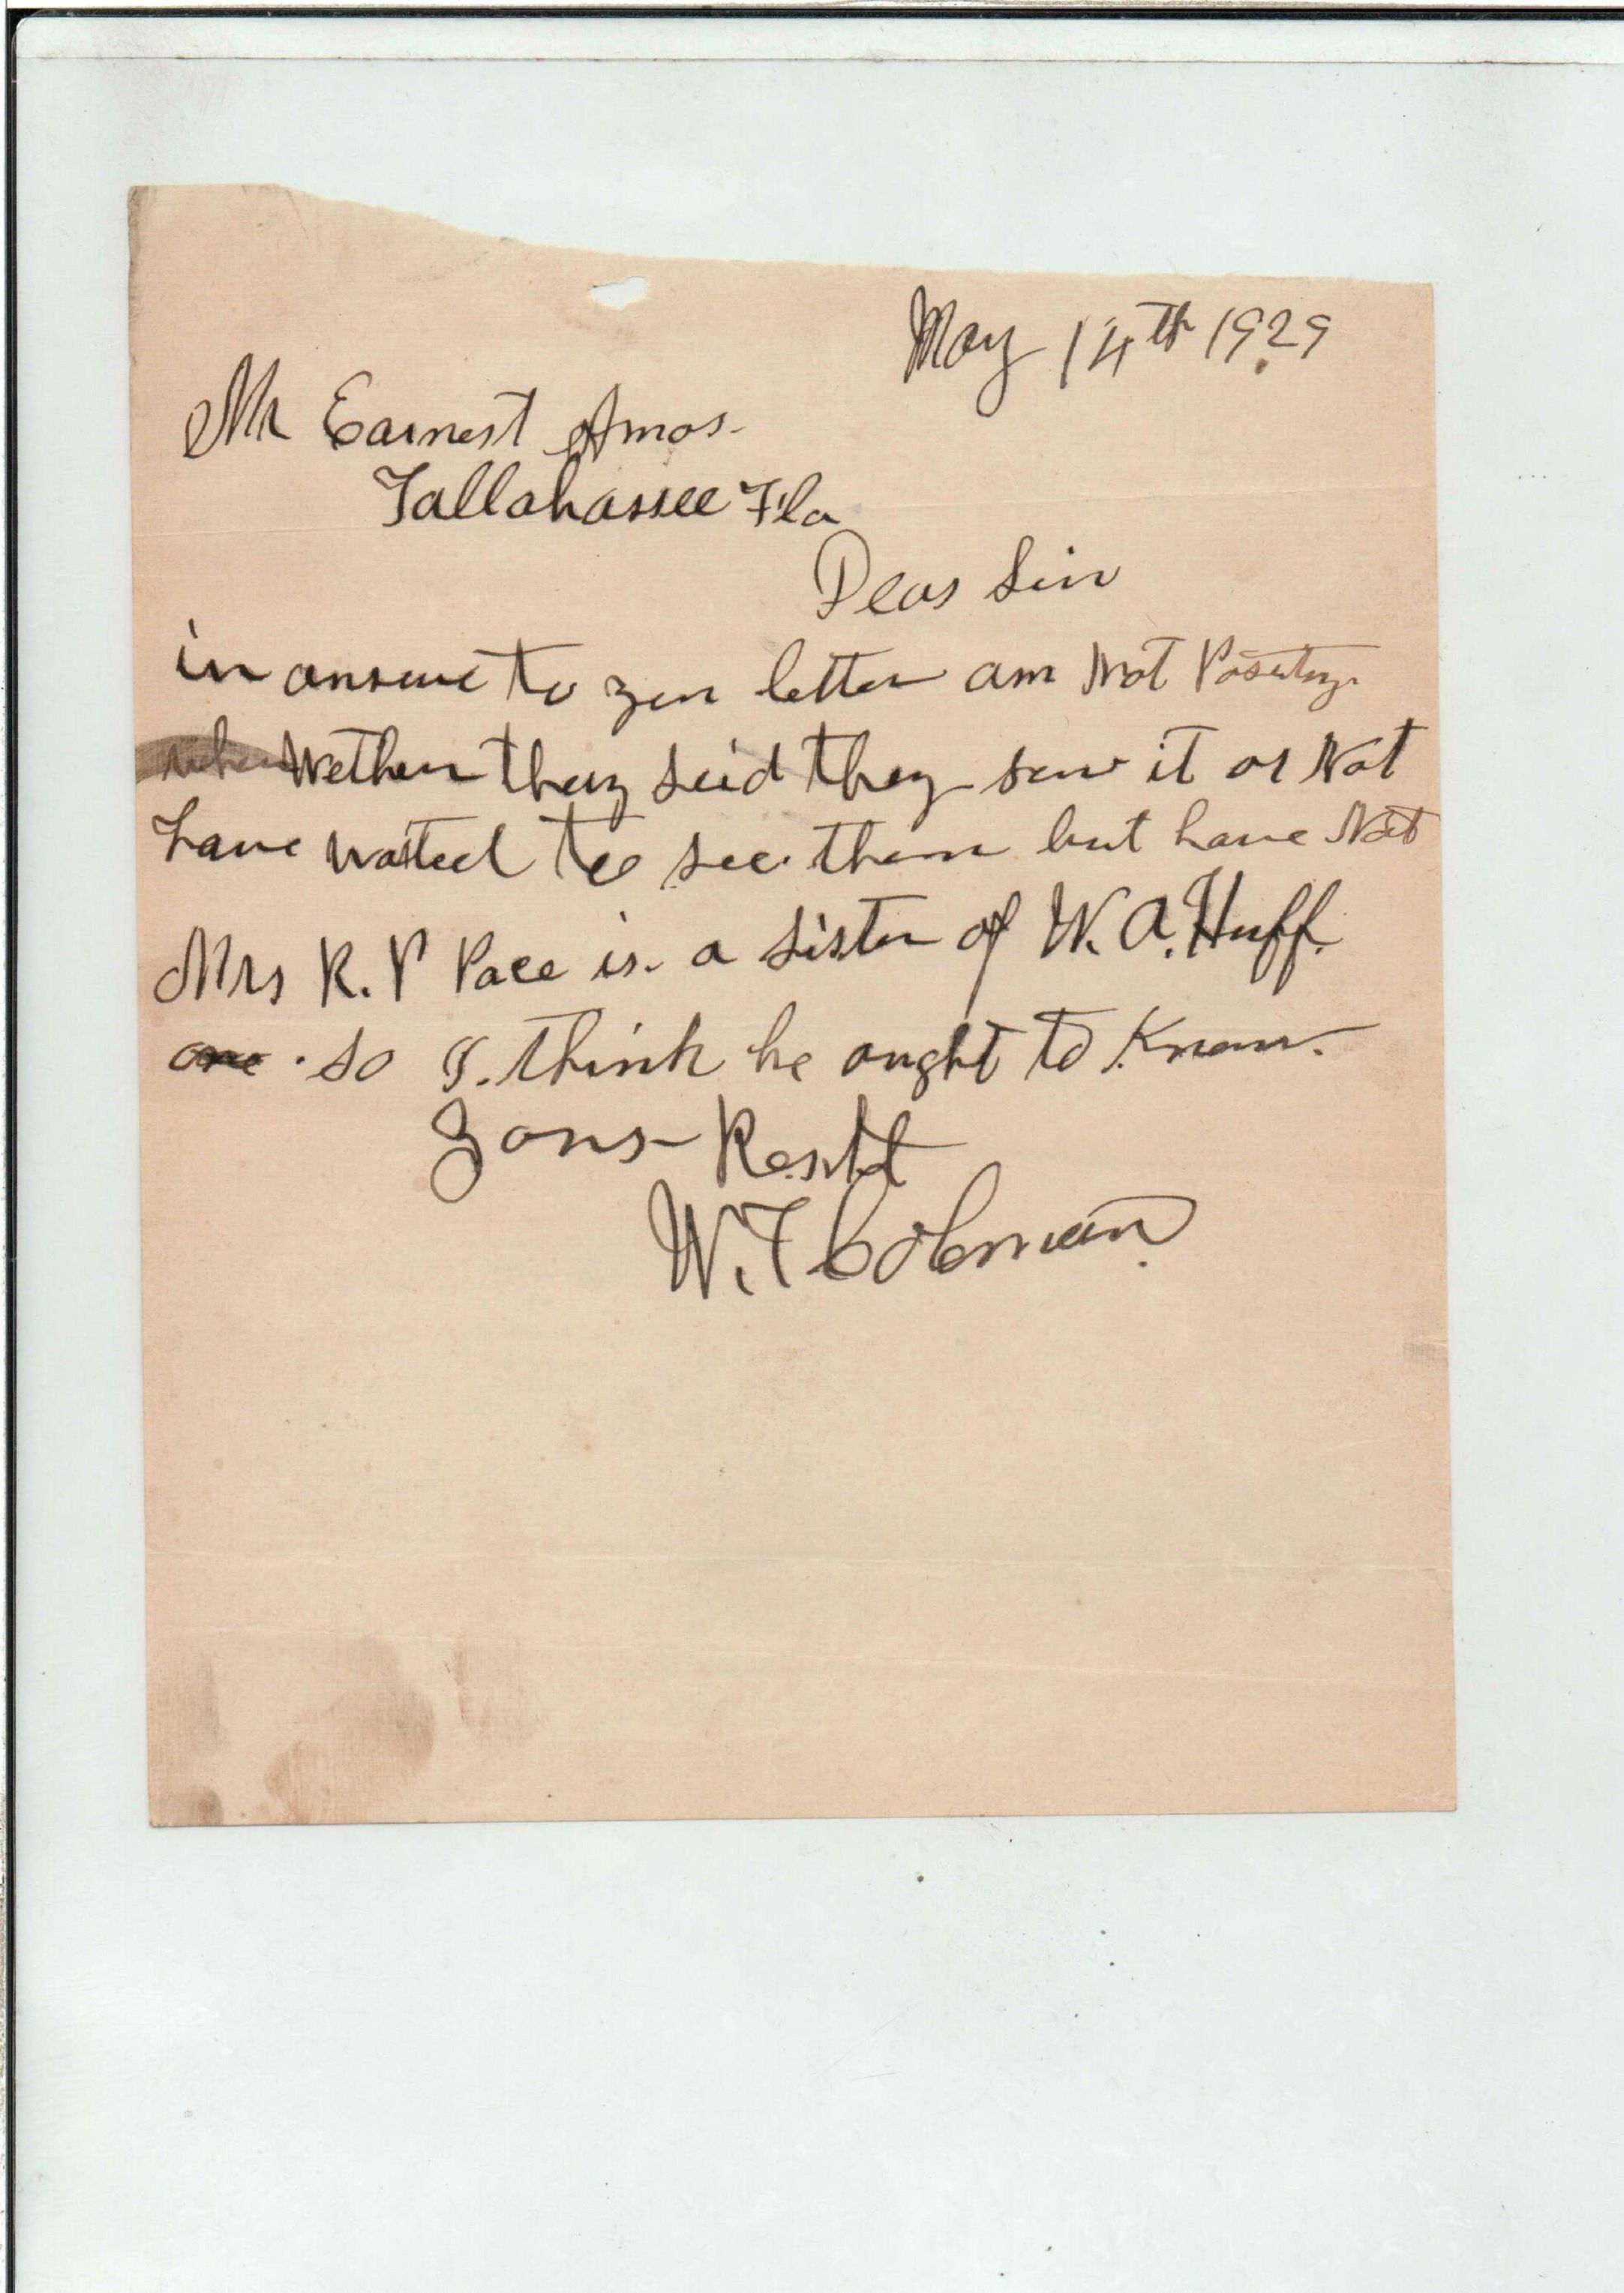 May 14th 1929
Mr Earnest Amos.
Tallahassee Fla
Dear Sir
in answe to your letter am Not
Wether they said they saw it or Not
have waited to see them but have Not
Mrs R. P Pace is a Sister of W. A. Huff.
so I. think he ought to Know.
yours
W. T Coleman